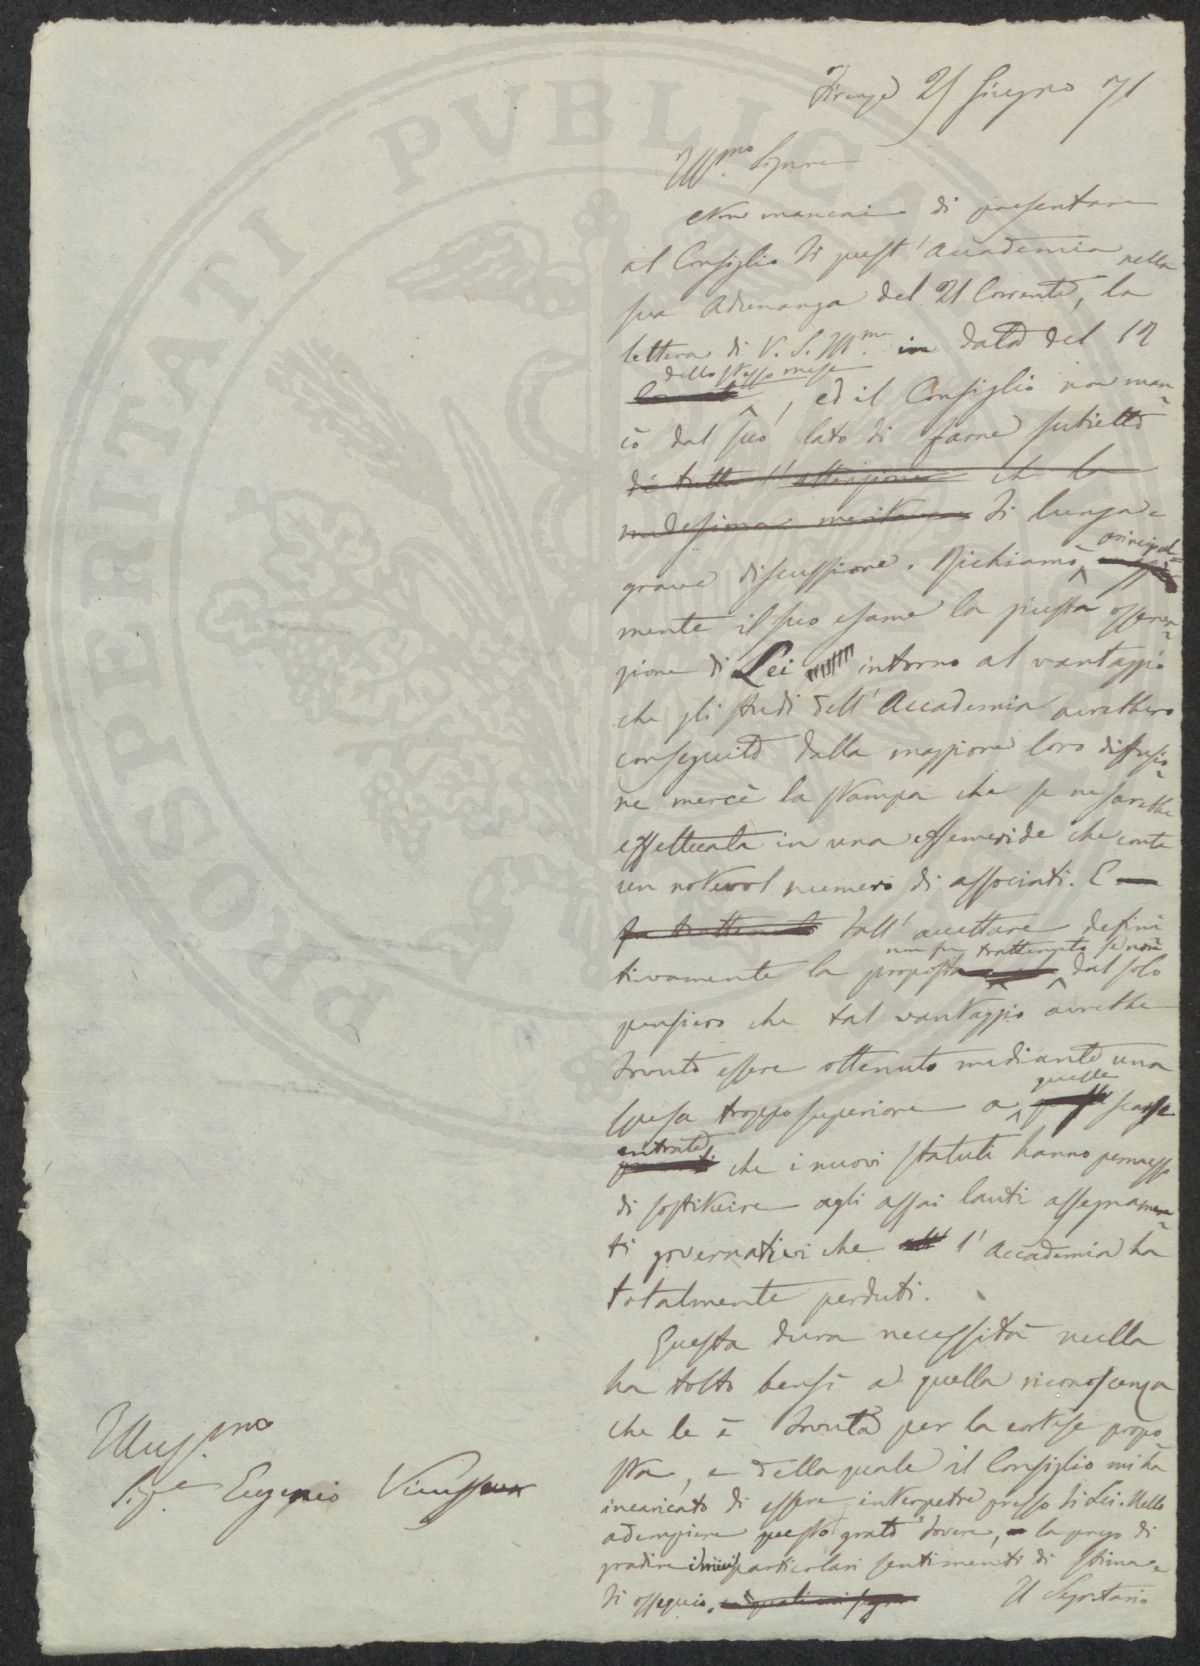 Firenze 21 Giugno 71
Ill.mo Signore
Non mancai di presentare
al Consiglio di quest'Accademia nella
sua Adunanza del 21 Corrente, la
lettera di V. S. Ill.ma in data del 12
dello stesso mese
, ed il Consiglio non man
cò dal suo lato di farne subietto
di tutta l'attenzione che la
medesima meritava di lunga e
grave discussione. Richiamò principal
mente il suo esame la giusta osserva
zione di Lei intorno al vantaggio
che gli studi dell'Accademia avrebbero
conseguito dalla maggiore loro diffusio
ne mercè la stampa che se ne sarebbe
effettuata in una effemeride che conta
un notevol numero di associati. E
fu trattenuto dall'accettare defini
non fu trattenuto se non
tivamente la proposta dal solo
pensiero che tal vantaggio avrebbe
dovuto essere ottenuto mediante una
quelle
spesa troppo superiore a scarse
entrate
che i nuovi statuti hanno permesso
di sostituire agli assai lauti assegnamen
ti governativi che l'Accademia ha
totalmente perduti.
Questa dura necessità nulla
ha tolto bensì a quella riconoscenza
che le è dovuta per la cortese propo
sta, e della quale il Consiglio mi ha
incaricato di essere interpetre presso di Lei. Nello
adempiere questo grato dovere, la prego di
gradire i miei particolari sentimenti di stima e
di ossequio, Il Segretario
Illus.mo
Sig.e Eugenio